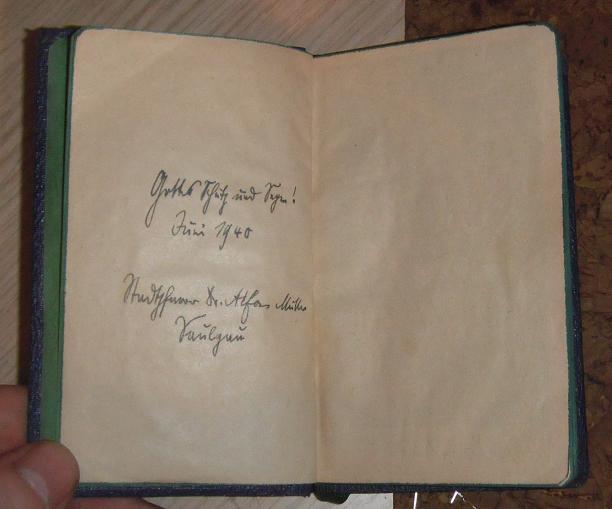 Gottes Schutz und Segen!
Juni 1940
Stadtpfarrer Dr. Alfons Müller
Saulgau